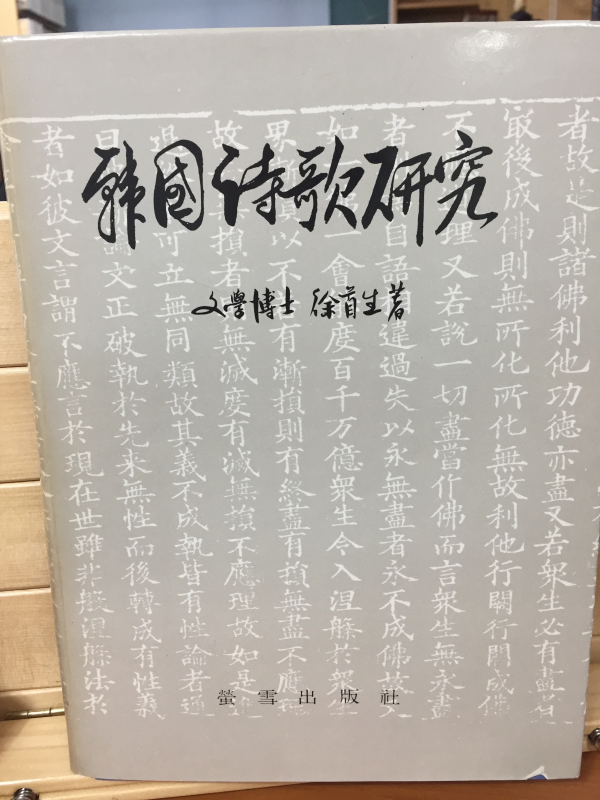 韓國詩歌研究
文學博士 徐首生著
者故是則諸佛利他功德亦盡又若衆生必有盡
㝡後成佛則無所化所化無故利他行闕行闕成佛
不理又若說一切盡當作佛而言衆生無永盡
者自語違過失以永無盡者永不成佛故
如一會度百千万億衆生今入涅槃於衆生
果以不有漸損則有終盡有損無盡不應理
故損者無滅度有滅無損不應理故如是
可立無同類故其義不成執皆有性論者通
曰論文正破執於先來無性而後轉成有性義
者如彼文言謂不應言於現在世雖非般涅槃法於
螢雪出版社